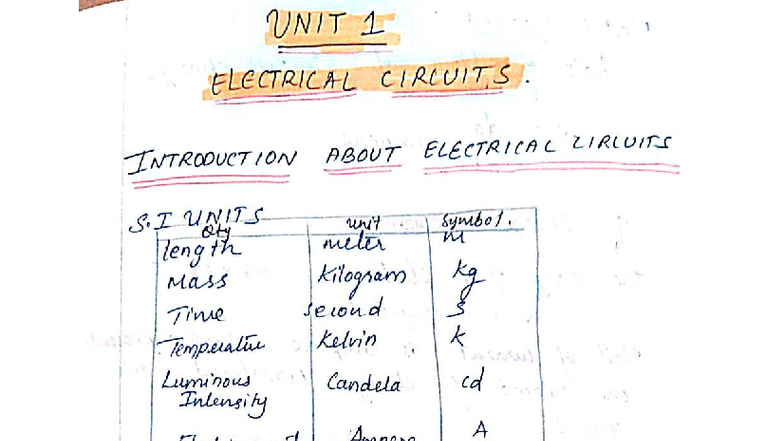 UNIT 1
ELECTRICAL CIRCUITS.
INTRODUCTION ABOUT ELECTRICAL CIRCUITS
S.I UNITS
Qty unit symbol.
length meter m
Mass Kilogram kg
Time second s
Temperature Kelvin k
Luminous Intensity Candela cd
Ampere A